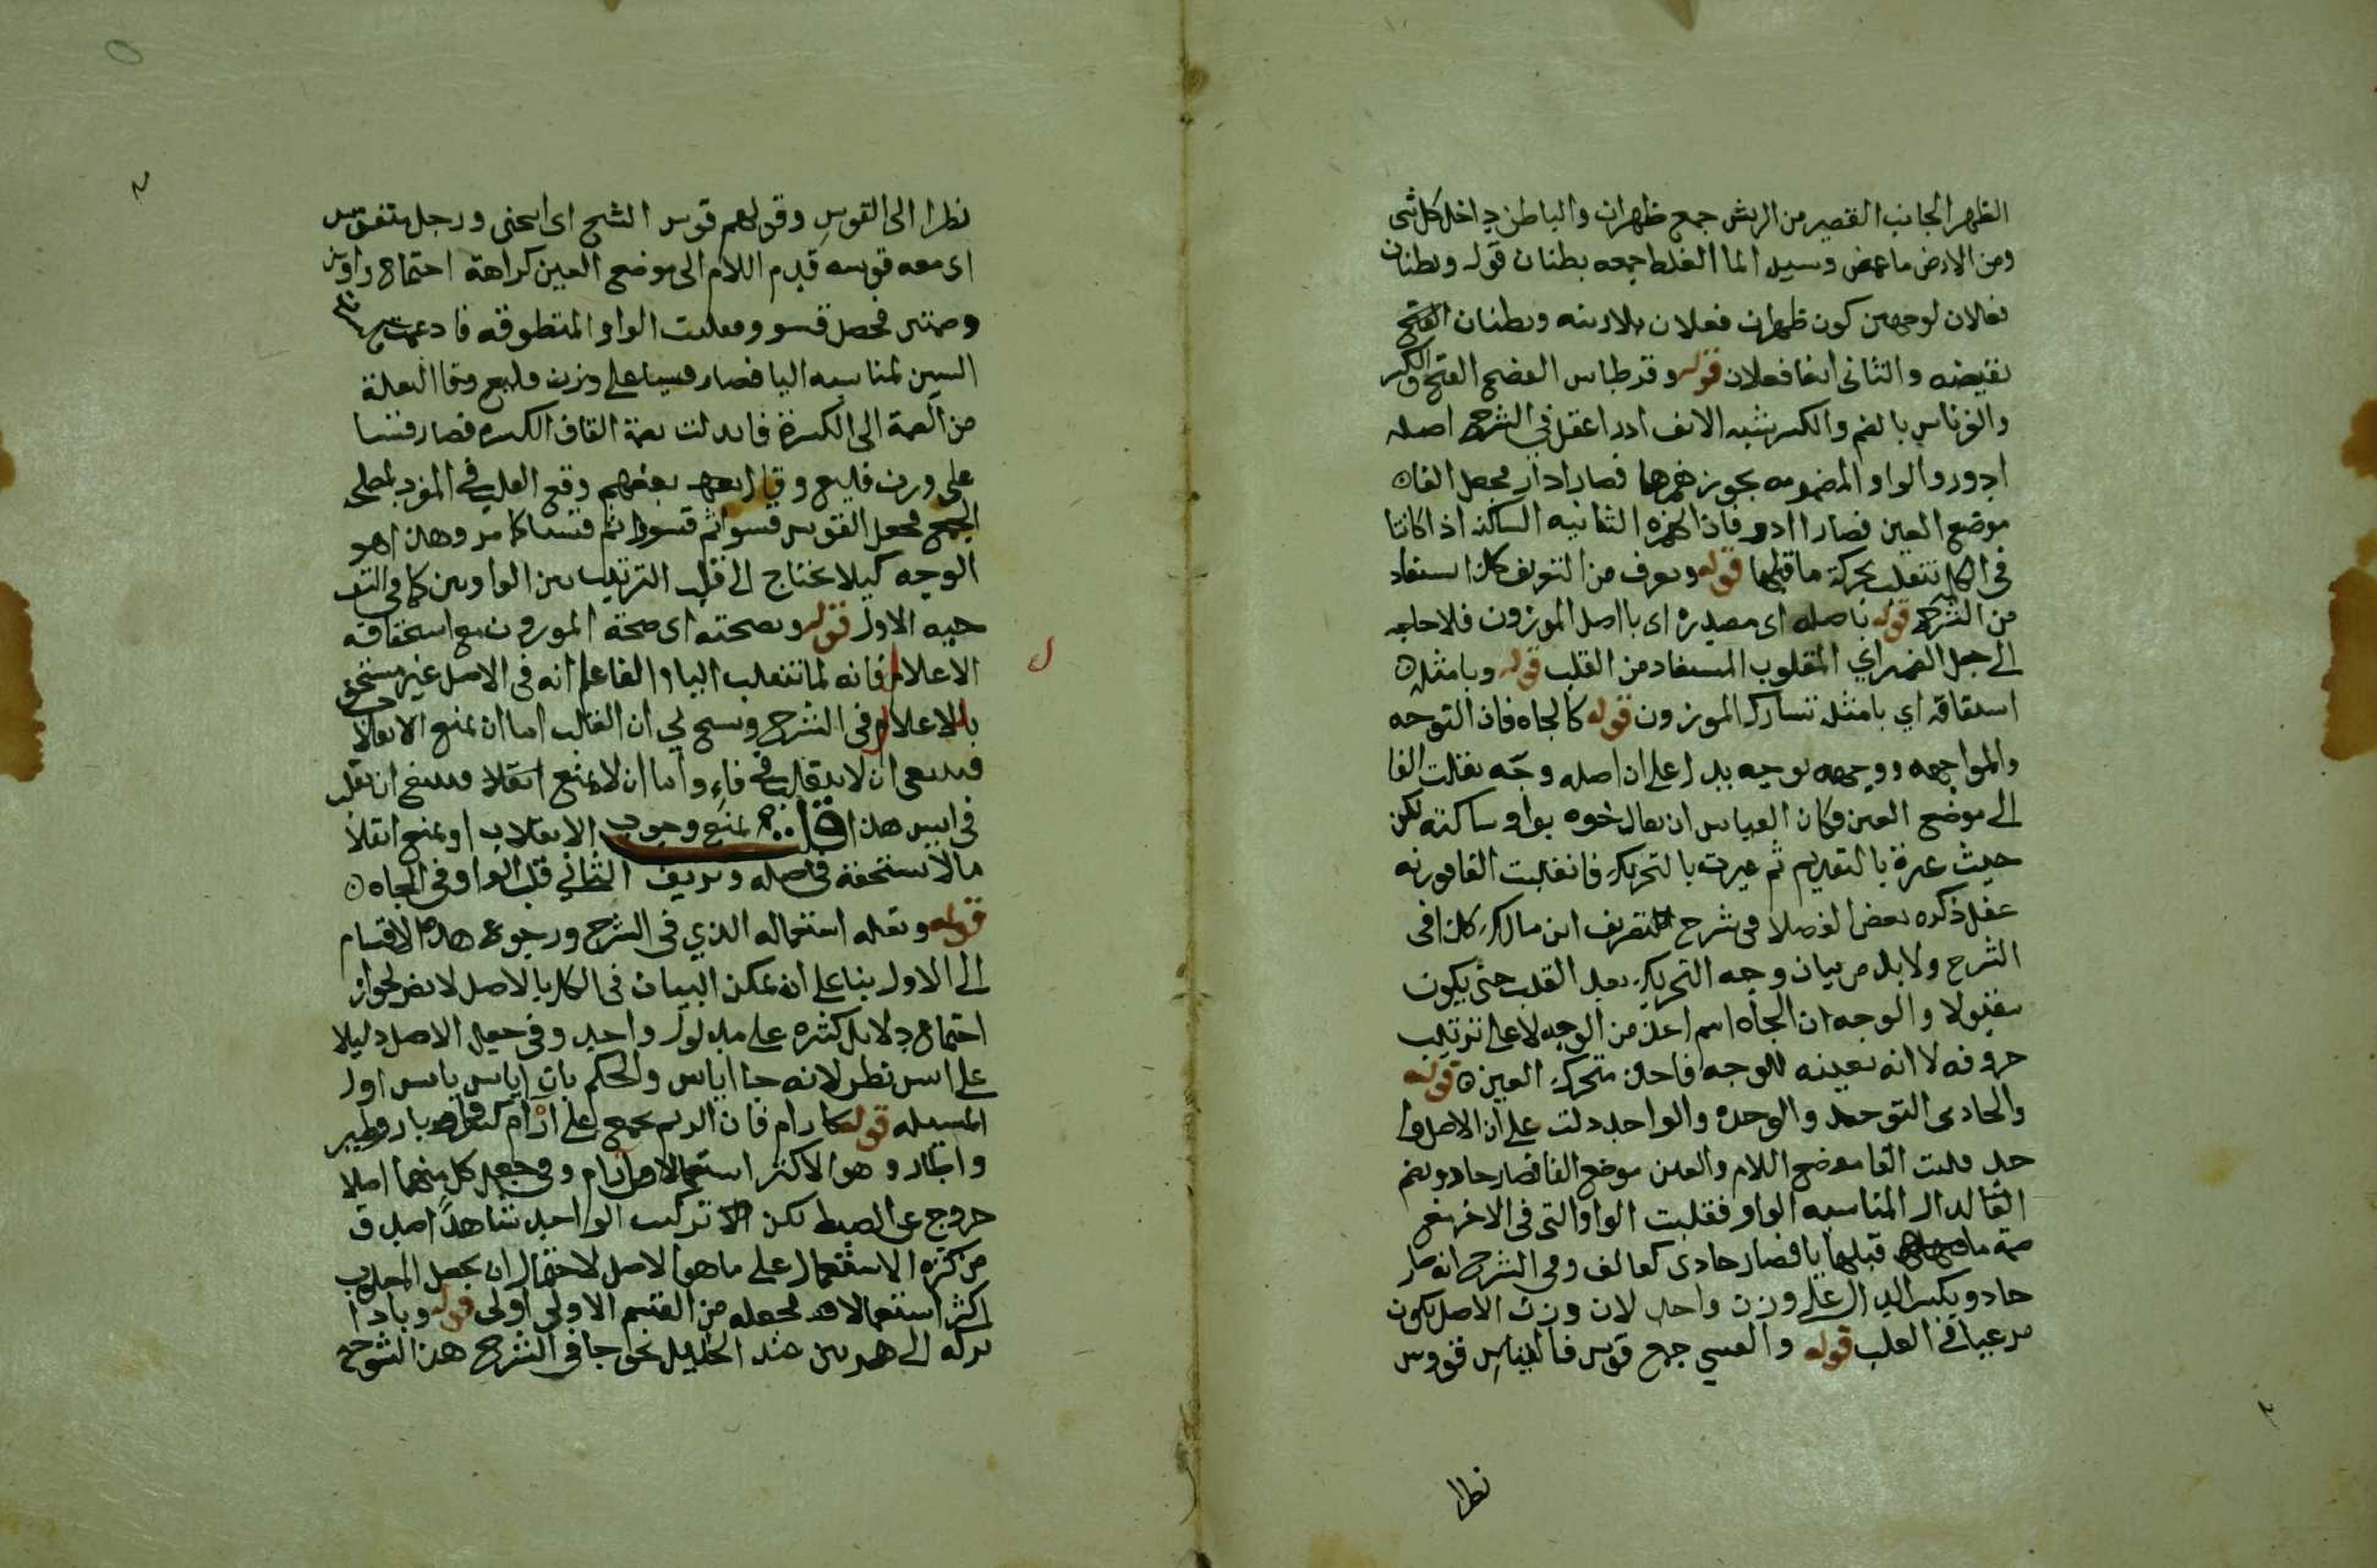 الظهر الجانب القصير من الريش جمع ظهران والباطن داخل كل شي
ومن الارض ما غمض وسيل الما الغلط جمعه بطنان قوله وبطنان
فعلان لوجهين كون ظهران فعلان بلاريبة وبطنان
نقيضه والثاني انها فعلان قوله وقرطاس الفصح الفتح والكسر
بالضم والكسر شبه الانف ادر اعقل في الشرح اصله
ادور والواو المضمومه يجوز همزها فصار اادر فجعل الفا
موضع العين فصار اادر فان الهمزه الثانيه الساكنه اذا كانتا
في تنقلب بحركة ما قبلها قوله ويعرف من التعريف كذا استفاد
من الشرح قوله باصله اى مصدره اى بااصل الموزون فلا حاجه
الى جعل الضمير اي المقلوب المستفاد من القلب قوله وبامثله
اشتقاقه اي بامثله تشارك الموزون قوله كالجاه فان التوجه
والمواجهه ووجهه توجيه يدل على ان اصله وجه نقلت الفا
الى موضع العين وكان القياس ان يقال جوه بواو ساكنه لكن
حيث غيرة بالتقديم ثم غيرت بالتحريك فانقلبت الفا فوزنه
عفل ذكره بعض الفضلا فى شرح تصريف ابن مالك كذا فى
الشرح ولا بد من بيان وجه التحريك بعد القلب حتى يكون
مقبولا والوجه ان الجاه اسم اخذ من الوجه لا على ترتيب
حروفه لا انه بعينه للوجه فاخذ متحرك العين قوله
والحادى التوحد والوحده والواحد دلت على ان الاصل وا
حد قلبت الفا موضع اللام والعين موضع الفا فصار حادو بضم
الدال المناسبه الواو فقلبت الواو التى فى الاخر مع
ضمة ما قبلها يا فصار حادى كعالف وفى الشرح انه صار
حادو بكسر الدال على وزن واحد لان وزن الاصل يكون
مرعيا في القلب قوله والقسي جمع قوس فالقياس قووس
نظرا
نظرا الى القوس وقولهم قوس الشيخ اى انحنى ورجل متقوس
اى معه قوسه قدم اللام الى موضع العين كراهة اجتماع واوين
وضمتين فحصل قسوو فقلبت الواو المتطرفه فادغمت
السين لمناسبه اليا فصار قسيا على وزن فليع وقا النقلة
من الضمة الى الكسرة فابدلت ضمة القاف الكسره فصار قسيا
على وزن فليع وقال بعضهم وقع القلب فى المفرد لمصلحة
الجمع فجعل القوس قسوا ثم قسووا ثم قسيا كما مر وهذا هو
الوجه كيلا يحتاج الى قلب الترتيب بين الواوين كما فى
الاول قوله وبصحته اى صحة الموزون مع استحقاقه
الاعلال فانه لما تنقلب اليا والفا علم انه فى الاصل غير مستحق
بالاعلال فى الشرح وسنح لي ان القلب اما ان يمنع الانقلاب
فينبغى ان لا ينقلب في فاء واما ان لا يمنع انقلابا فينبغى ان تقلب
فى ايس هذا قلت يمنع وجوب الانقلاب او يمنع انقلاب
ما لا يستحقه فى اصله ويزيف الثاني قلب الواو فى الجاه
قوله وبقله استعماله الذي فى الشرح ورجوع هذه الاقسام
الى الاول بنا على انه يمكن البيان فى الكل بالاصل لا يضر لجواز
اجتماع دلايل كثره على مدلول واحد وفى جعل الاصل دليلا
على ايس نظر لانه جا اياس والحكم بان اياس يايس اول
المسئله قوله كارام فان الريم يجمع على ارام
وابار وهو الاكثر استعمالا من ارام وفى جعل كل منهما اصلا
خروج عن الضبط لكن تركيب الواحد شاهد اصدق
من كثره الاستعمال على ما هو الاصل لاحتمال ان يجعل المقلوب
اكثر استعمالا فجعله من القسم الاولى اولى قوله وبادا
تركه الى همزتين عند الخليل نحو جا فى الشرح هذا